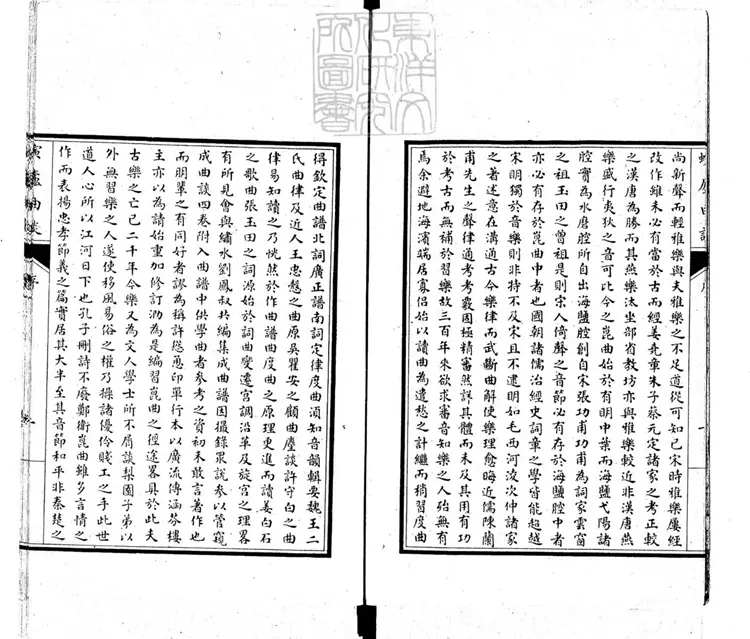 尚新聲而輕雅樂與夫雅樂之不足道從可知已宋時雅樂屢經
改作雖未必有當於古而經姜堯章朱子蔡元定諸家之考正較
之漢唐為勝而其燕樂汰坐部省教坊亦與雅樂較近非漢唐燕
樂盛行夷狄之音可比今之崑曲始於有明中葉而海鹽弋陽諸
腔實為水磨腔所自出海鹽腔創自宋張功甫功甫為詞家雲窗
之祖玉田之曾祖是則宋人倚聲之音節必有存於海鹽腔中者
亦必有存於崑曲中者也國朝諸儒治經史詞章之學皆能超越
宋明獨於音樂則非特不及宋且不逮明如毛西河淩次仲諸家
之著述意在溝通古今樂律而武斷曲解使樂理愈晦近儒陳蘭
甫先生之聲律通考考覈因極精審然詳其體而未及其用有功
於考古而無補於習樂故三百年來欲求審音知樂之人殆無有
焉余避地海濱端居寡侶始以讀曲為遣愁之計繼而稍習度曲
得欽定曲譜北詞廣正譜南詞定律度曲須知音韻輯要魏王二
氏曲律及近人王忠慤之曲原吳瞿安之顧曲麈談許守白之曲
律易知讀之乃恍然於作曲譜曲度曲之原理更進而讀姜白石
之歌曲張玉田之詞源始於詞曲變遷宮調沿革及旋宮之理畧
有所見會與繡水劉鳳叔共編集成曲譜因攝錄眾說參以管窺
成曲談四卷附入曲譜中供學曲者參考之資初未敢言著作也
而朋輩之有同好者謬為稱許慫恿印單行本以廣流傳涵芬樓
主亦以為請始重加修訂沕為是編習崑曲之徑途畧具於此夫
古樂之亡已二千年今樂又為文人學士所不屑談梨園子弟以
外無習樂之人遂使移風易俗之權乃操諸優伶賤工之手此世
道人心所以江河日下也孔子刪詩不廢鄭衛崑曲雖多言情之
作而表揚忠孝節義之篇實居其大半至其音節和平非秦楚之
螾廬曲談
序
一
東洋文
化研究
所圖書